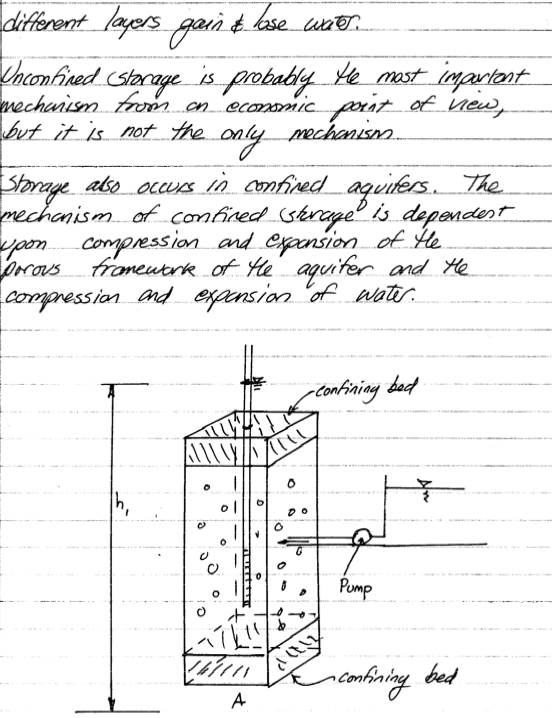 different layers gain & lose water.
Unconfined storage is probably the most important
mechanism from an economic point of view,
but it is not the only mechanism.
Storage also occurs in confined aquifers. The
mechanism of confined storage is dependent
upon compression and expansion of the
porous framework of the aquifer and the
compression and expansion of water.
confining bed
h₁
Pump
confining bed
A